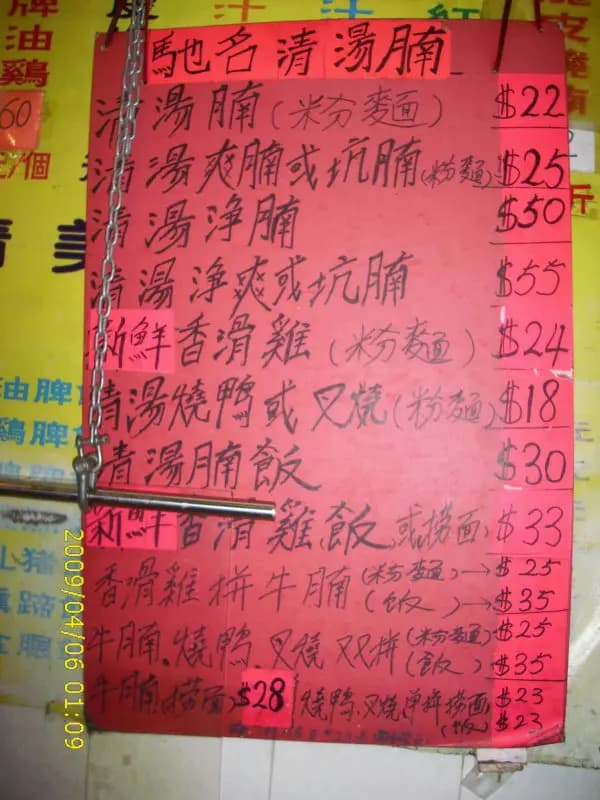 馳名清湯腩
清湯腩(粉麵) $22
清湯爽腩或坑腩(粉麵) $25
清湯淨腩 $50
清湯淨爽或坑腩 $55
新鮮香滑雞(粉麵) $24
清湯燒鴨或叉燒(粉麵) $18
清湯腩飯 $30
新鮮香滑雞飯或撈面 $33
香滑雞拼牛腩(粉麵)→ $25
(飯)→ $35
牛腩.燒鴨叉燒双拼(粉麵) $25
(飯) $35
牛腩撈面 $28 燒鴨.叉燒單拼撈面 $23
(飯) $23
油
鷄
60
個
油脾
鷄脾
2009/04/06 01:09